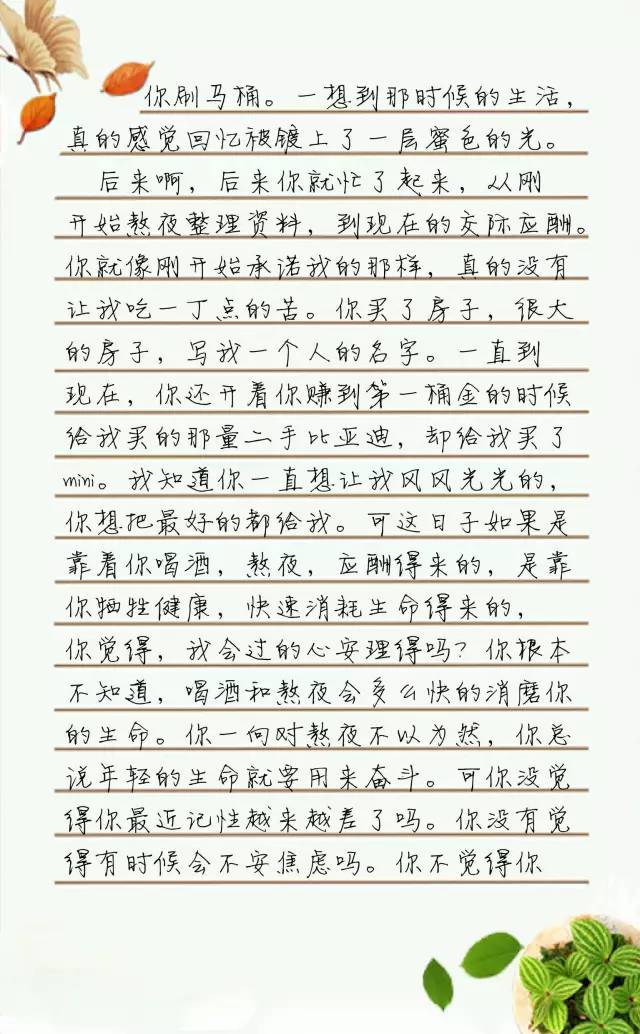 你刷马桶。一想到那时候的生活，
真的感觉回忆被镀上了一层蜜色的光。
后来啊，后来你就忙了起来，从刚
开始熬夜整理资料，到现在的交际应酬。
你就像刚开始承诺我的那样，真的没有
让我吃一丁点的苦。你买了房子，很大
的房子，写我一个人的名字。一直到
现在，你还开着你赚到第一桶金的时候
给我买的那量二手比亚迪，却给我买了
mini。我知道你一直想让我风风光光的，
你想把最好的都给我。可这日子如果是
靠着你喝酒，熬夜，应酬得来的，是靠
你牺牲健康，快速消耗生命得来的，
你觉得，我会过的心安理得吗？你根本
不知道，喝酒和熬夜会多么快的消磨你
的生命。你一向对熬夜不以为然，你总
说年轻的生命就要用来奋斗。可你没觉
得你最近记性越来越差了吗。你没有觉
得有时候会不安焦虑吗。你不觉得你